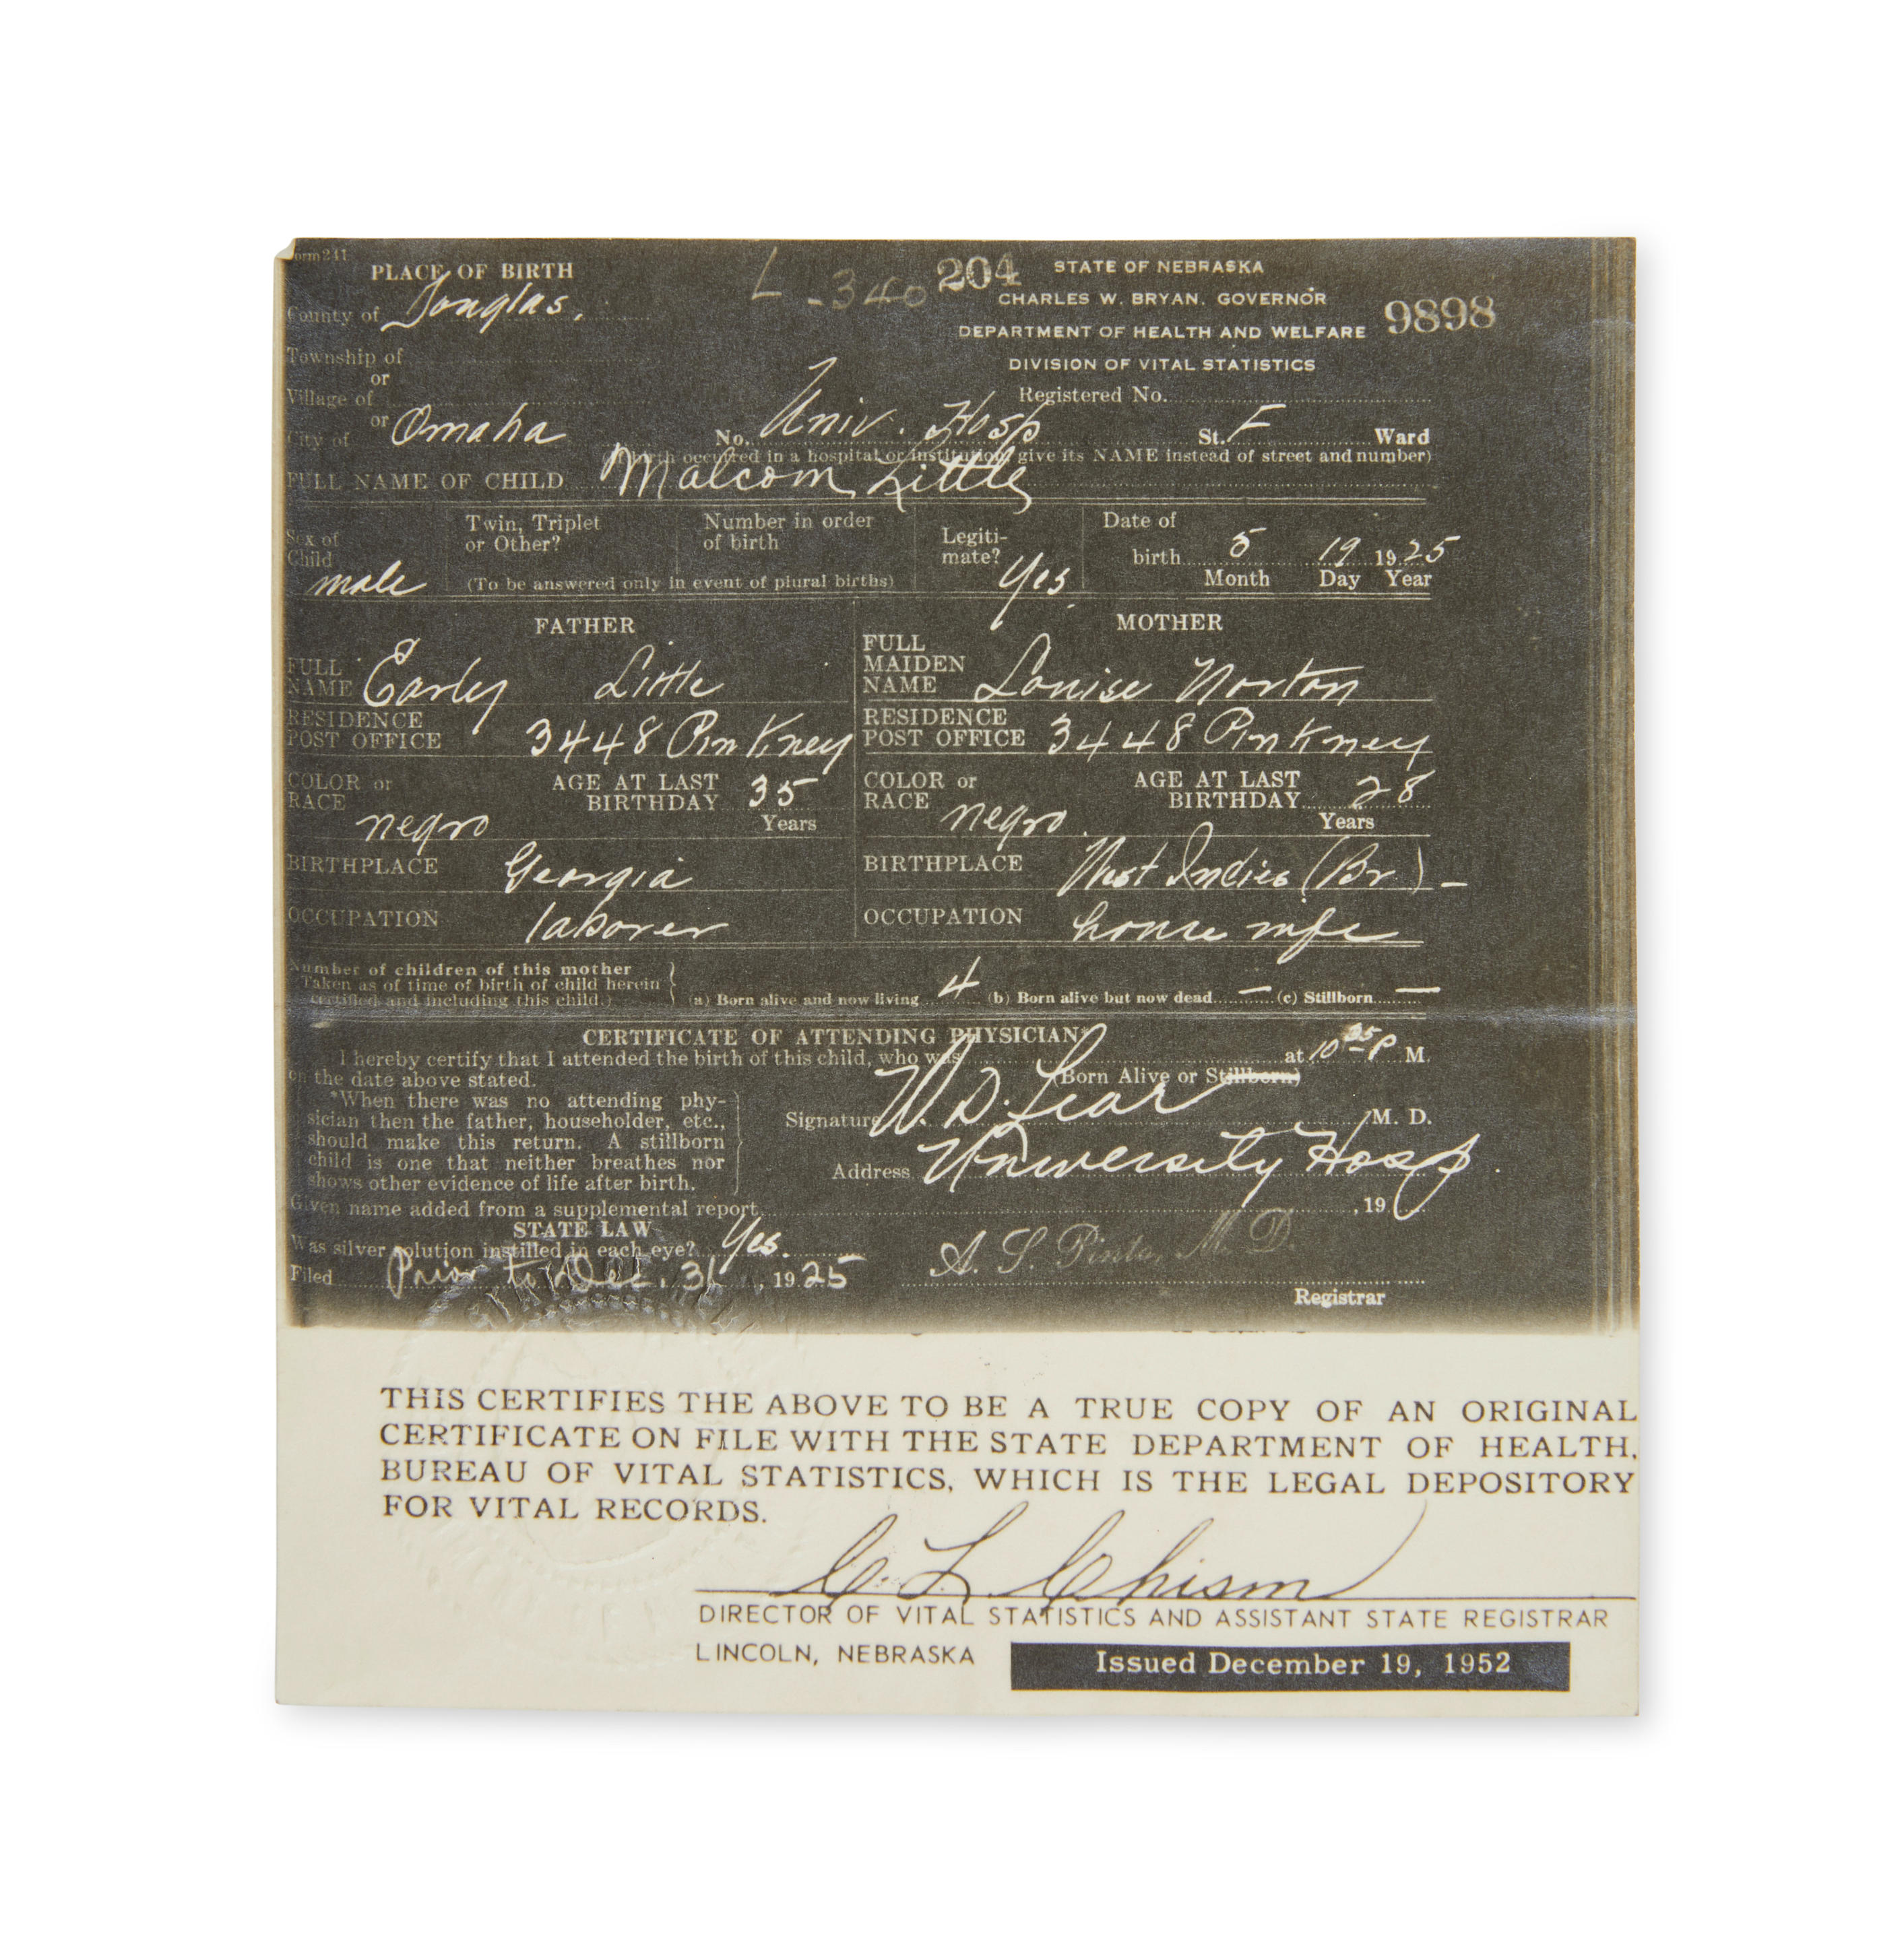 Form 241
PLACE OF BIRTH
County of Douglas.
Township of
or
Village of
or
City of Omaha
L-340 204
STATE OF NEBRASKA
CHARLES W. BRYAN. GOVERNOR
DEPARTMENT OF HEALTH AND WELFARE
DIVISION OF VITAL STATISTICS
9898
Registered No.
No. Univ. Hosp St. F Ward
(If birth occurred in a hospital or institution, give its NAME instead of street and number)
FULL NAME OF CHILD Malcom Little
Sex of Child male
Twin, Triplet or Other?
Number in order of birth
(To be answered only in event of plural births)
Legiti-mate? Yes
Date of birth 5 19 1925
Month Day Year
FATHER
FULL NAME Early Little
RESIDENCE POST OFFICE 3448 Pinkney
COLOR or RACE negro AGE AT LAST BIRTHDAY 35 Years
BIRTHPLACE Georgia
OCCUPATION laborer
MOTHER
FULL MAIDEN NAME Louise Norton
RESIDENCE POST OFFICE 3448 Pinkney
COLOR or RACE negro. AGE AT LAST BIRTHDAY 28 Years
BIRTHPLACE West Indies (Br) -
OCCUPATION house wife
Number of children of this mother
Taken as of time of birth of child herein
certified and including this child.)
(a) Born alive and now living 4 (b) Born alive but now dead — (c) Stillborn —
CERTIFICATE OF ATTENDING PHYSICIAN*
I hereby certify that I attended the birth of this child, who was at 10 35 P M.
on the date above stated. (Born Alive or Stillborn)
*When there was no attending phy-
sician then the father, householder, etc.,
should make this return. A stillborn
child is one that neither breathes nor
shows other evidence of life after birth.
Signature W. D. Lear M. D.
Address University Hosp.
Given name added from a supplemental report , 19
STATE LAW
Was silver solution instilled in each eye? Yes.
Filed Prior to Dec. 31, 1925
A. S. Pinto, M. D.
Registrar
THIS CERTIFIES THE ABOVE TO BE A TRUE COPY OF AN ORIGINAL
CERTIFICATE ON FILE WITH THE STATE DEPARTMENT OF HEALTH,
BUREAU OF VITAL STATISTICS, WHICH IS THE LEGAL DEPOSITORY
FOR VITAL RECORDS.
C. L. Chism
DIRECTOR OF VITAL STATISTICS AND ASSISTANT STATE REGISTRAR
LINCOLN, NEBRASKA
Issued December 19, 1952